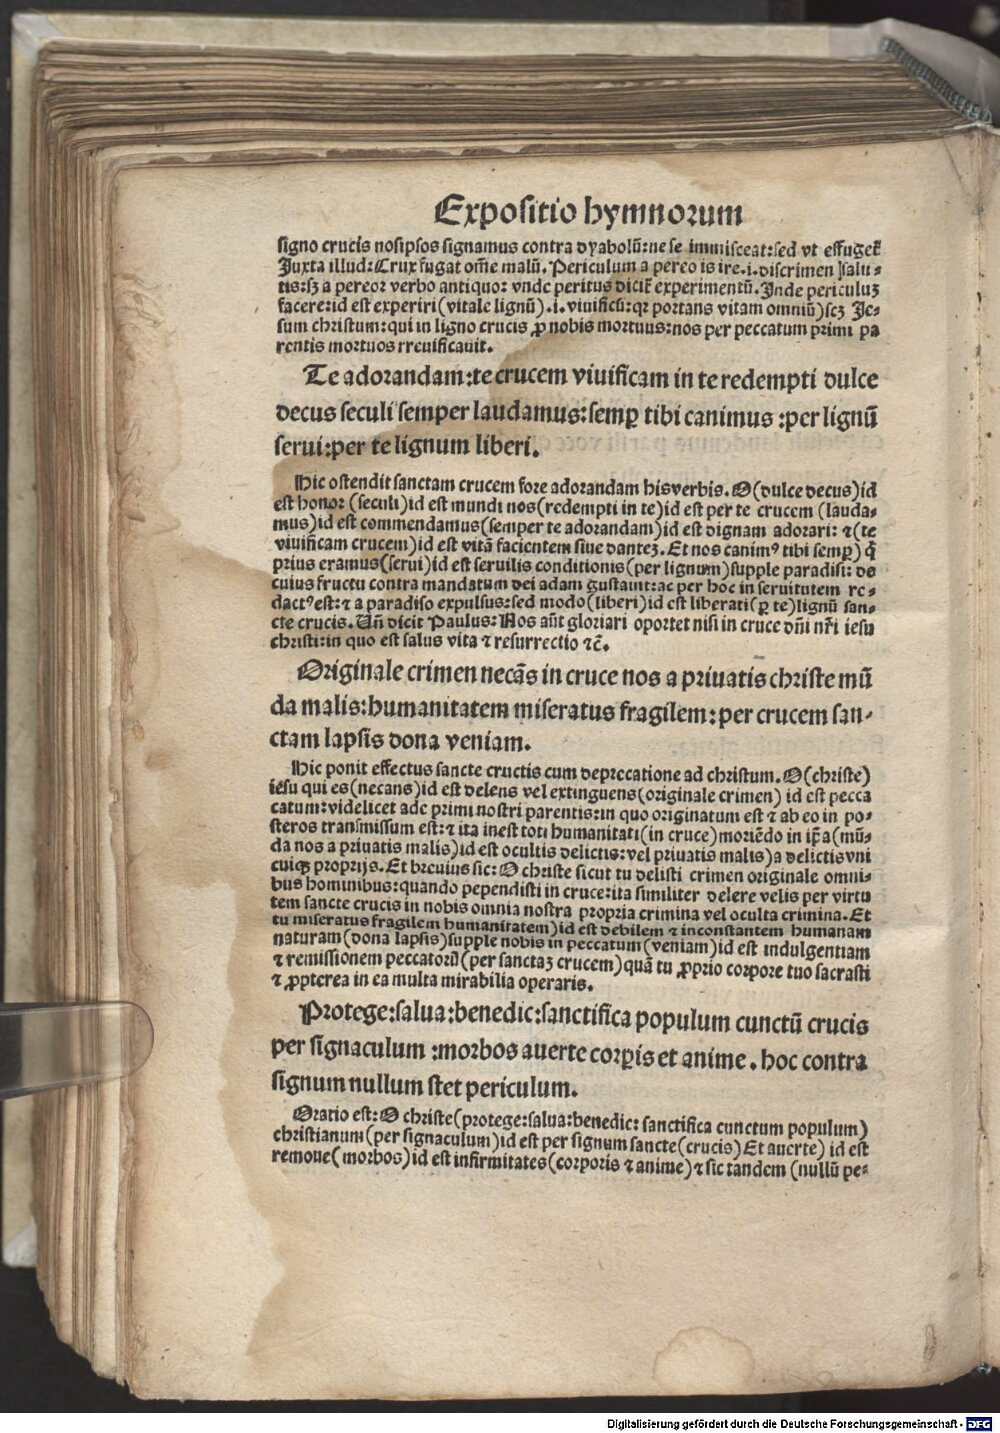 Expositio hymnorum
signo crucis nosipsos signamus contra dyabolū:ne se immisceat:sed vt effuget᷑
Juxta illud:Crux fugat om̄e malū. Periculum a pereo is ire.i.discrimen salu⸗
tis:sꝫ a pereor verbo antiquo: vnde peritus dicit᷑ experimentū. Inde periculuꝫ
facere:id est experiri(vitale lignū).i. viuificū:qꝛ portans vitam omniū)scꝫ Je⸗
sum christum:qui in ligno crucis ꝓ nobis mortuus:nos per peccatum primi pa
rentis mortuos reuificauit.
Te adorandam:te crucem viuificam in te redempti dulce
decus seculi semper laudamus:semꝑ tibi canimus :per lignū
serui:per te lignum liberi.
Hic ostendit sanctam crucem fore adorandam his verbis. O(dulce decus)id
est honor (seculi)id est mundi nos(redempti in te)id est per te crucem (lauda⸗
mus)id est commendamus(semper te adorandam)id est dignam adorari: ⁊(te
viuificam crucem)id est vitā facientem siue danteꝫ. Et nos canimꝰ tibi semꝑ) q̄
prius eramus(serui)id est seruilis conditionis(per lignum)supple paradisi: de
cuius fructu contra mandatum dei adam gustauit:ac per hoc in seruitutem re⸗
dactꝰ est:⁊ a paradiso expulsus:sed modo(liberi)id est liberati(ꝑ te)lignū san⸗
cte crucis. Un̄ dicit Paulus: Nos aūt gloriari oportet nisi in cruce dn̄i nr̄i iesu
christi:in quo est salus vita ⁊ resurrectio ⁊c̄.
Originale crimen necās in cruce nos a priuatis christe mū
da malis:humanitatem miseratus fragilem:per crucem san⸗
ctam lapsis dona veniam.
Hic ponit effectus sancte crucis cum deprecatione ad christum. O(christe)
iesu qui es(necans)id est delens vel extinguens(originale crimen) id est pecca
catum:videlicet ade primi nostri parentis:in quo originatum est ⁊ ab eo in po⸗
steros transmissum est:⁊ ita inest toti humanitati(in cruce)moriēdo in ip̄a(mū⸗
da nos a priuatis malis)id est ocultis delictis:vel priuatis malis)a delictis vni
cuiqꝫ proprijs. Et breuius sic: O christe sicut tu delisti crimen originale omni⸗
bus hominibus:quando pependisti in cruce:ita similiter delere velis per virtu
tem sancte crucis in nobis omnia nostra propria crimina vel oculta crimina. Et
tu miseratus fragilem humanitatem)id est debilem ⁊ inconstantem humanam
naturam(dona lapsis)supple nobis in peccatum (veniam)id est indulgentiam
⁊ remissionem peccatorū(per sanctaꝫ crucem)quā tu ꝓprio corpore tuo sacrasti
⁊ ꝓpterea in ea multa mirabilia operaris.
Protege:salua:benedic:sanctifica populum cunctū crucis
per signaculum :morbos auerte corꝑis et anime. hoc contra
signum nullum stet periculum.
Oratio est: O christe(protege:salua:benedic: sanctifica cunctum populum)
christianum(per signaculum)id est per signum sancte(crucis) Et auerte) id est
remoue( morbos)id est infirmitates(corporis ⁊ anime)⁊ sic tandem (nullū pe⸗
Digitalisierung gefördert durch die Deutsche Forschungsgemeinschaft - DFG